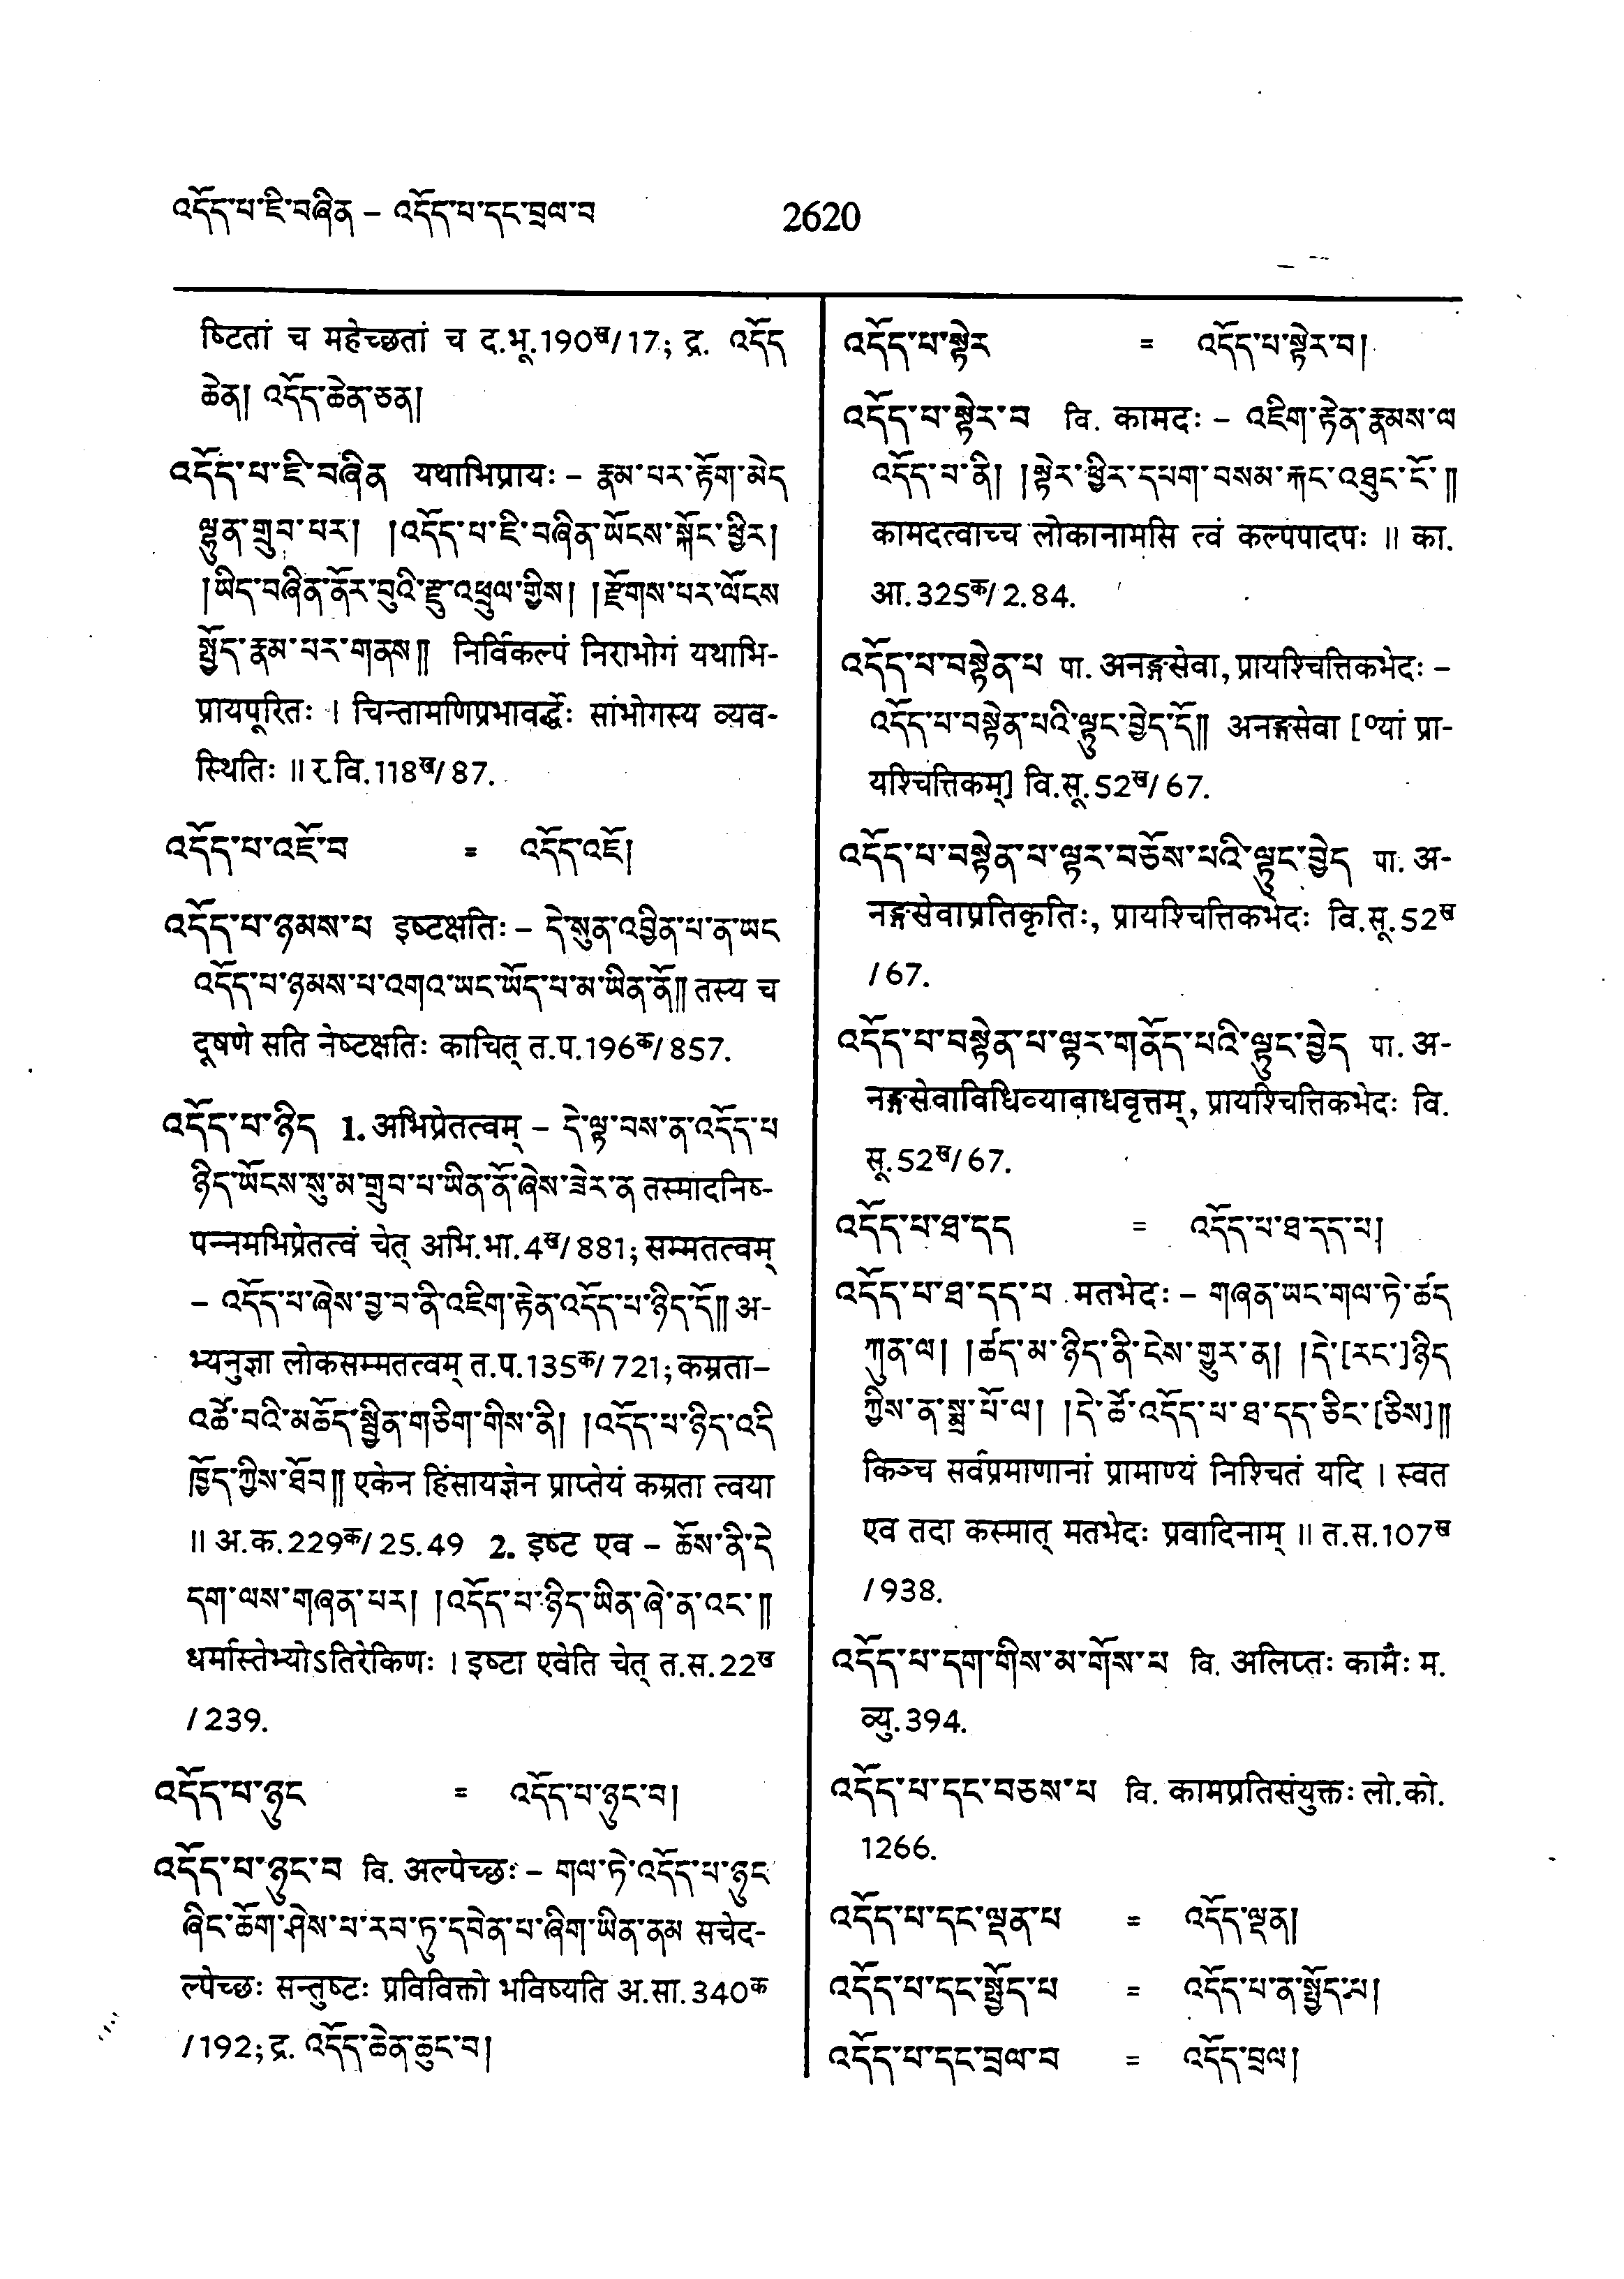 འདོད་པ་ཇི་བཞིན – འདོད་པ་དང་བྲལ་བ
2620
ष्टितां च महेच्छतां च द.भू.190ख/17; द्र. འདོད
ཆེན། འདོད་ཆེན་ཅན།
འདོད་པ་ཇི་བཞིན यथाभिप्रायः – རྣམ་པར་རྟོག་མེད
ལྷུན་གྲུབ་པར། །འདོད་པ་ཇི་བཞིན་ཡོངས་སྐོང་ཕྱིར།
།ཡིད་བཞིན་ནོར་བུའི་རྫུ་འཕྲུལ་གྱིས། །རྫོགས་པར་ལོངས
སྤྱོད་རྣམ་པར་གནས༎ निर्विकल्पं निराभोगं यथाभि-
प्रायपूरितः । चिन्तामणिप्रभावर्द्धेः सांभोगस्य व्यव-
स्थितिः ॥ र.वि.118ख/87.
འདོད་པ་འཇོ་བ = འདོད་འཇོ།
འདོད་པ་ཉམས་པ इष्टक्षतिः – དེ་སུན་འབྱིན་པ་ན་ཡང
འདོད་པ་ཉམས་པ་འགའ་ཡང་ཡོད་པ་མ་ཡིན་ནོ༎ तस्य च
दूषणे सति नेष्टक्षतिः काचित् त.प.196क/857.
འདོད་པ་ཉིད 1. अभिप्रेतत्वम् – དེ་ལྟ་བས་ན་འདོད་པ
ཉིད་ཡོངས་སུ་མ་གྲུབ་པ་ཡིན་ནོ་ཞེས་ཟེར་ན तस्मादनिष-
पन्नमभिप्रेतत्वं चेत् अभि.भा.4ख/881; सम्मतत्वम्
– འདོད་པ་ཞེས་བྱ་བ་ནི་འཇིག་རྟེན་འདོད་པ་ཉིད་དོ༎ अ-
भ्यनुज्ञा लोकसम्मतत्वम् त.प.135क/721; कम्रता–
འཚོ་བའི་མཆོད་སྦྱིན་གཅིག་གིས་ནི། །འདོད་པ་ཉིད་འདི
ཁྱོད་ཀྱིས་ཐོབ༎ एकेन हिंसायज्ञेन प्राप्तेयं कम्रता त्वया
॥ अ.क.229क/25.49 2. इष्ट एव – ཆོས་ནི་དེ
དག་ལས་གཞན་པར། །འདོད་པ་ཉིད་ཡིན་ཞེ་ན་འང་༎
धर्मास्तेभ्योऽतिरेकिणः । इष्टा एवेति चेत् त.स.22ख
/239.
འདོད་པ་ཉུང = འདོད་པ་ཉུང་བ།
འདོད་པ་ཉུང་བ वि. अल्पेच्छः – གལ་ཏེ་འདོད་པ་ཉུང
ཞིང་ཆོག་ཤེས་པ་རབ་ཏུ་དབེན་པ་ཞིག་ཡིན་ནམ सचेद-
ल्पेच्छः सन्तुष्टः प्रविविक्तो भविष्यति अ.सा.340क
/192; द्र. འདོད་ཆེན་ཆུང་བ།
འདོད་པ་སྟེར = འདོད་པ་སྟེར་བ།
འདོད་པ་སྟེར་བ वि. कामदः – འཇིག་རྟེན་རྣམས་ལ
འདོད་པ་ནི། །སྟེར་ཕྱིར་དཔག་བསམ་རྐང་འཐུང་ངོ་༎
कामदत्वाच्च लोकानामसि त्वं कल्पपादपः ॥ का.
आ.325क/2.84.
འདོད་པ་བསྟེན་པ पा. अनङ्गसेवा, प्रायश्चित्तिकभेदः –
འདོད་པ་བསྟེན་པའི་ལྟུང་བྱེད་དོ༎ अनङ्गसेवा [०यां प्रा-
यश्चित्तिकम्] वि.सू.52ख/67.
འདོད་པ་བསྟེན་པ་ལྟར་བཅོས་པའི་ལྟུང་བྱེད पा. अ-
नङ्गसेवाप्रतिकृतिः, प्रायश्चित्तिकभेदः वि.सू.52ख
/67.
འདོད་པ་བསྟེན་པ་ལྟར་གནོད་པའི་ལྟུང་བྱེད पा. अ-
नङ्गसेवाविधिव्याबाधवृत्तम्, प्रायश्चित्तिकभेदः वि.
सू.52ख/67.
འདོད་པ་ཐ་དད = འདོད་པ་ཐ་དད་པ།
འདོད་པ་ཐ་དད་པ मतभेदः – གཞན་ཡང་གལ་ཏེ་ཚད
ཀུན་ལ། །ཚད་མ་ཉིད་ནི་ངེས་གྱུར་ན། །དེ་[རང་]ཉིད
ཀྱིས་ན་སྨྲ་པོ་ལ། །དེ་ཚེ་འདོད་པ་ཐ་དད་ཅིང་[ཅིས]༎
किञ्च सर्वप्रमाणानां प्रामाण्यं निश्चितं यदि । स्वत
एव तदा कस्मात् मतभेदः प्रवादिनाम् ॥ त.स.107ख
/938.
འདོད་པ་དག་གིས་མ་གོས་པ वि. अलिप्तः कामैः म.
व्यु.394.
འདོད་པ་དང་བཅས་པ वि. कामप्रतिसंयुक्तः लो.को.
1266.
འདོད་པ་དང་ལྡན་པ = འདོད་ལྡན།
འདོད་པ་དང་སྤྱོད་པ = འདོད་པ་ན་སྤྱོད་པ།
འདོད་པ་དང་བྲལ་བ = འདོད་བྲལ།